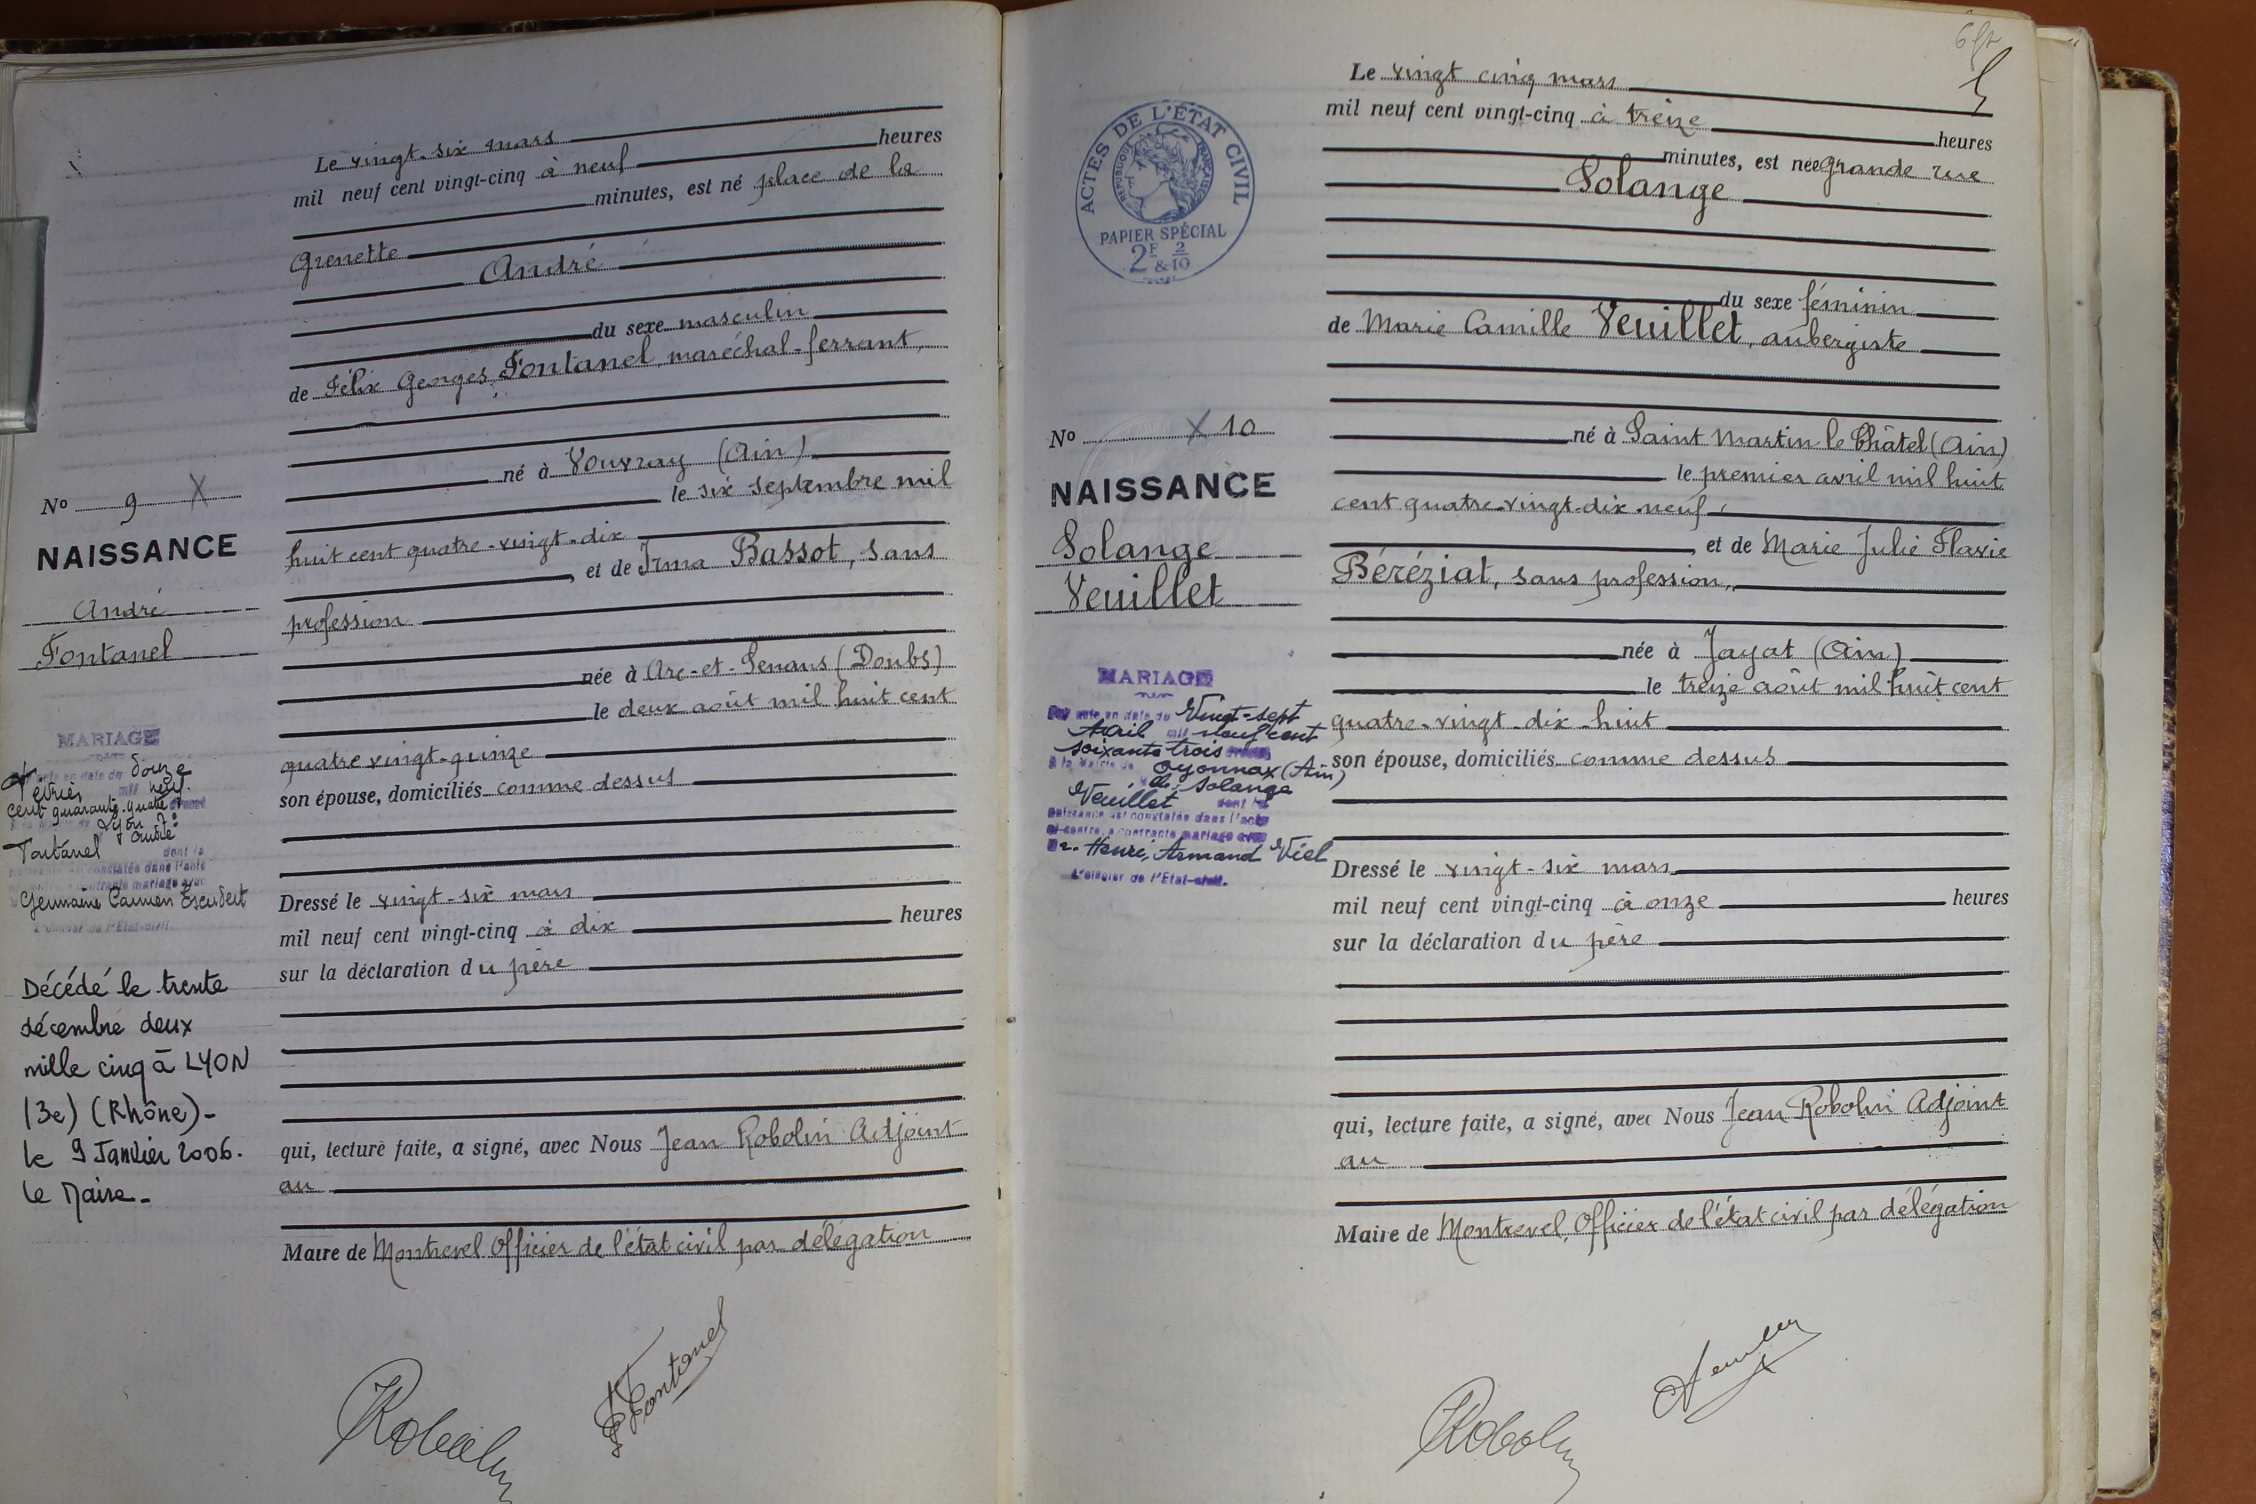 Le vingt-six mars
mil neuf cent vingt-cinq à neuf heures
minutes, est né place de la
Grenette
André
du sexe masculin
de Félix Georges Fontanel, maréchal-ferrant,
né à Vouvray (Ain)
le six septembre mil
huit cent quatre-vingt-dix
, et de Irma Bassot, sans
profession
née à Arc-et-Senans (Doubs)
le deux août mil huit cent
quatre vingt-quinze
son épouse, domiciliés comme dessus
Dressé le vingt-six mars
mil neuf cent vingt-cinq à dix heures
sur la déclaration du père
qui, lecture faite, a signé, avec Nous Jean Robolin Adjoint
au
Maire de Montrevel Officier de l'état civil par délégation
Robolin
F Fontanel
No 9 X
NAISSANCE
André
Fontanel
MARIAGE
acte en date du douze
février mil neuf
cent quarante-quatre
Lyon
André
Fontanel dont la
naissance est constatée dans l'acte
ci-contre, a contracté mariage avec
Germaine Carmen Escudert
L'officier de l'Etat-civil.
Décédé le trente
décembre deux
mille cinq à LYON
(3e) (Rhône)-
le 9 Janvier 2006.
le Maire-
5
Le vingt cinq mars
mil neuf cent vingt-cinq à treize heures
minutes, est née grande rue
Solange
du sexe féminin
de Marie Camille Veuillet, aubergiste
né à Saint Martin le Châtel (Ain)
le premier avril mil huit
cent quatre-vingt-dix-neuf,
, et de Marie Julie Flavie
Béréziat, sans profession,
née à Jayat (Ain)
le treize août mil huit cent
quatre-vingt-dix-huit
son épouse, domiciliés comme dessus
Dressé le vingt-six mars
mil neuf cent vingt-cinq à onze heures
sur la déclaration du père
qui, lecture faite, a signé, avec Nous Jean Robolin Adjoint
au
Maire de Montrevel, Officier de l'état civil par délégation
Robolin
ACTES DE L'ÉTAT CIVIL
RÉPUBLIQUE FRANÇAISE
PAPIER SPÉCIAL
2F & 2/10
No X 10
NAISSANCE
Solange
Veuillet
MARIAGE
Par acte en date du Vingt-sept
Avril mil neuf cent
soixante trois
à la Mairie de Oyonnax (Ain)
Solange
Veuillet dont la
naissance est constatée dans l'acte
ci-contre, a contracté mariage avec
Henri, Armand Viel
L'officier de l'Etat-civil.